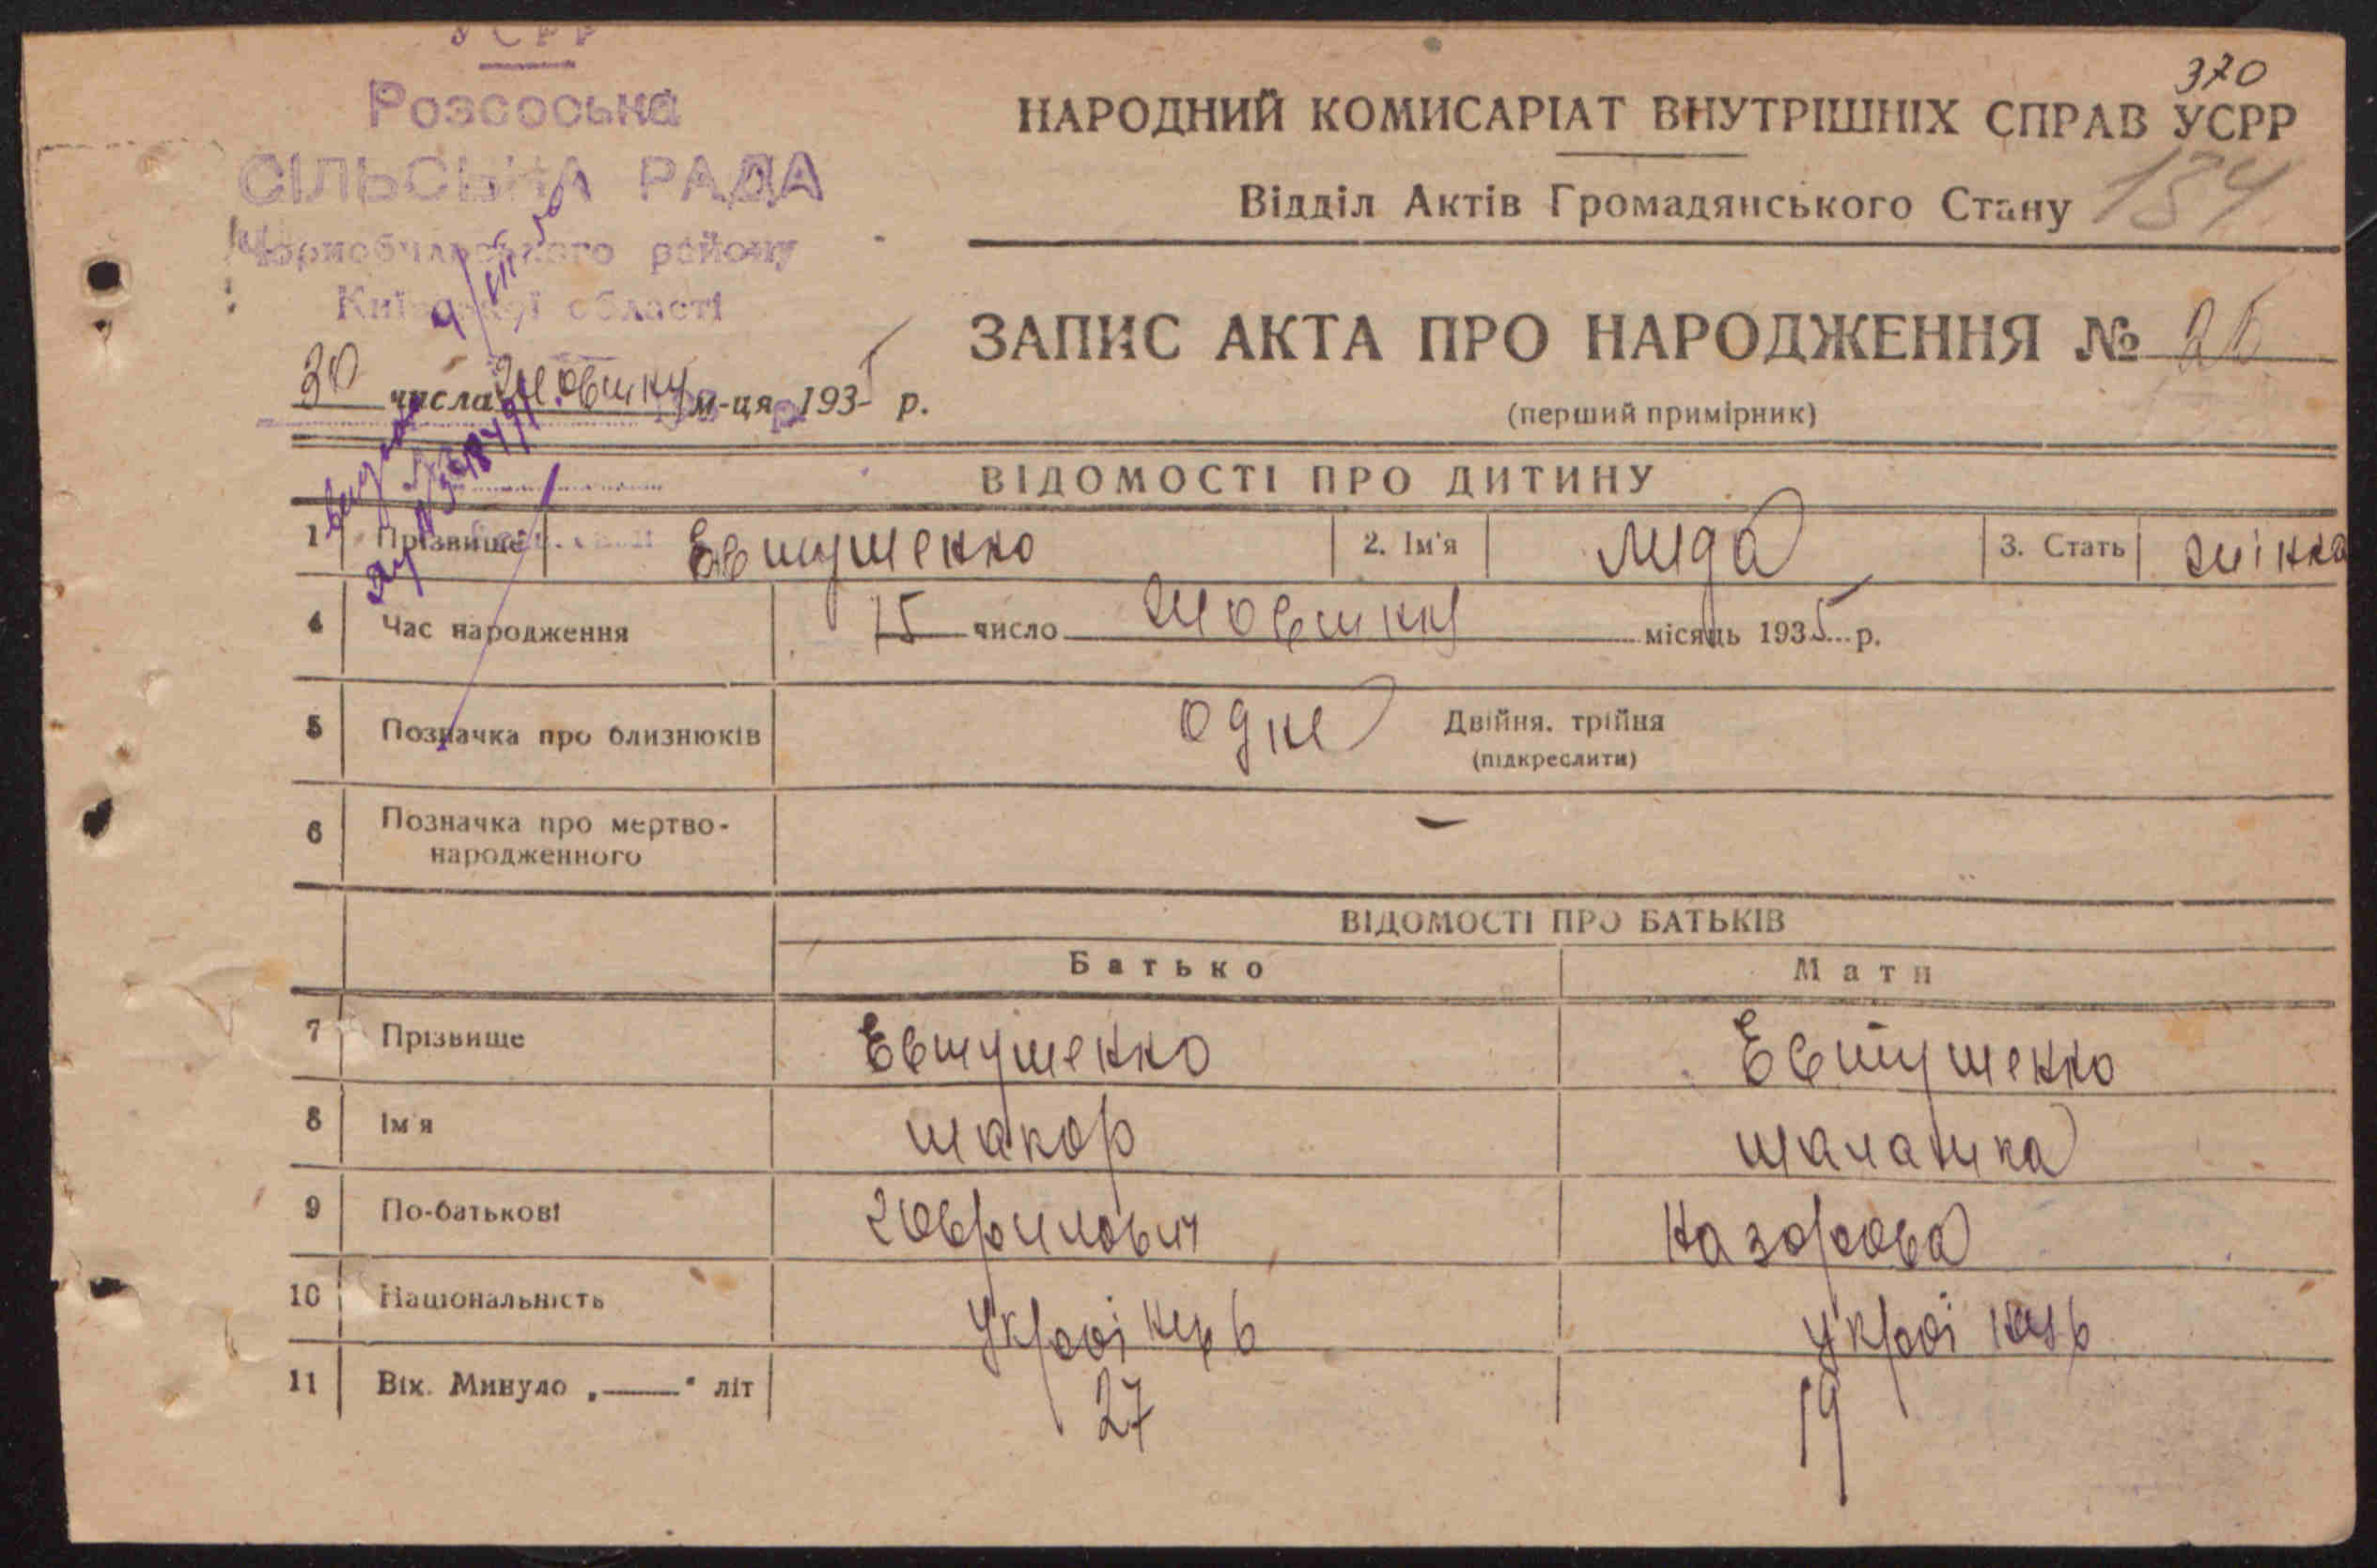 УСРР
Розсоська
СІЛЬСЬКА РАДА
Чорнобильського району
Київської області
370
НАРОДНИЙ КОМИСАРІАТ ВНУТРІШНІХ СПРАВ УСРР
Відділ Актів Громадянського Стану 134
ЗАПИС АКТА ПРО НАРОДЖЕННЯ № 25
(перший примірник)
30 числа жовтня м-ця 1935 р.
ВІДОМОСТІ ПРО ДИТИНУ
1 Прізвище Евтушенко 2. Ім'я лида 3. Стать жінка
4 Час народження 15 число жовтня місяць 1935 р.
5 Позначка про близнюків одне Двійня, трійня
(підкреслити)
6 Позначка про мертво-
народженного -
ВІДОМОСТІ ПРО БАТЬКІВ
Батько Мати
7 Прізвище Евтушенко Евтушенко
8 Ім'я макар
9 По-батькові гаврилович назарова
10 Національність
11 Вік. Минуло „——“ літ 27 19